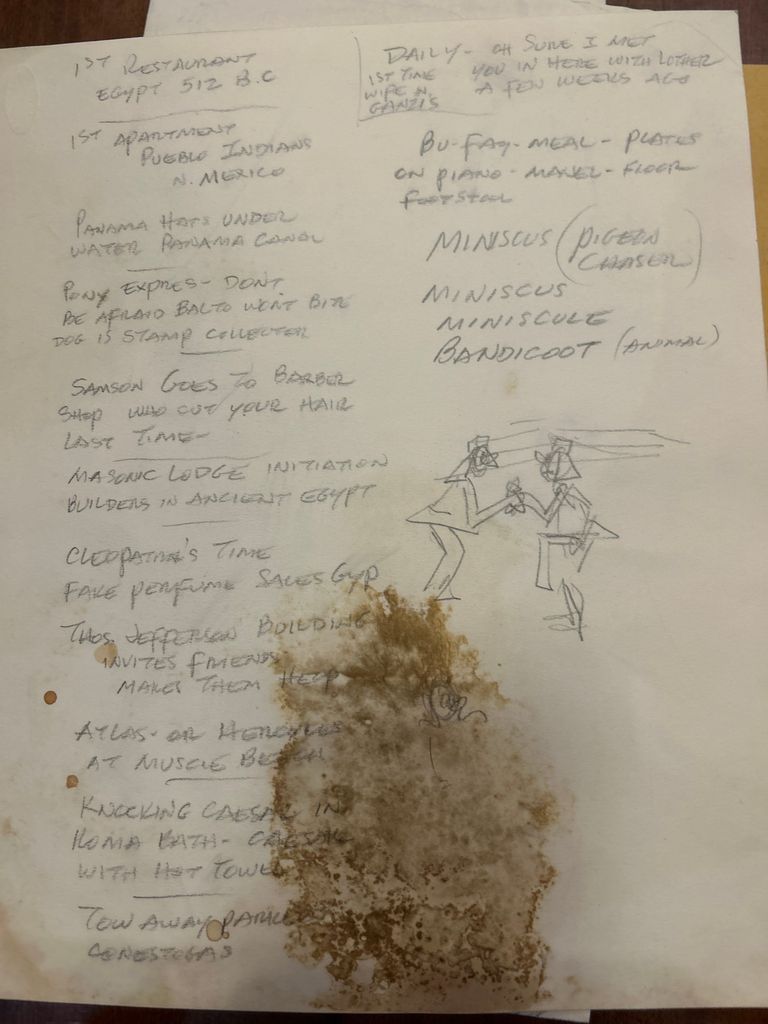 1ST RESTAURANT
EGYPT 512 B.C
1ST APARTMENT
PUEBLO INDIANS
N. MEXICO
PANAMA HATS UNDER
WATER PANAMA CANAL
PONY EXPRES - DONT
BE AFRAID BALTO WONT BITE
DOG IS STAMP COLLECTER
SAMSON GOES TO BARBER
SHOP WHO CUT YOUR HAIR
LAST TIME -
MASONIC LODGE INITIATION
BUILDERS IN ANCIENT EGYPT
CLEOPATRA'S TIME
FAKE PERFUME SALES GYP
THOS. JEFFERSON BUILDING
INVITES FRIENDS
MAKES THEM HELP
ATLAS - OR HERCULES
AT MUSCLE BEACH
KNOCKING CAESAR IN
ROMA BATH - CAESAR
WITH HOT TOWEL
TOW AWAY PARKED
CONESTOGAS
DAILY - OH SURE I MET
YOU IN HERE WITH LOTHER
A FEW WEEKS AGO
1ST TIME
WIFE IN
BU-FAY-MEAL - PLATES
ON PIANO - MANEL - FLOOR
FOOTSTOOL
MINISCUS (PIGEON
CHASER)
MINISCUS
MINISCULE
BANDICOOT (ANIMAL)